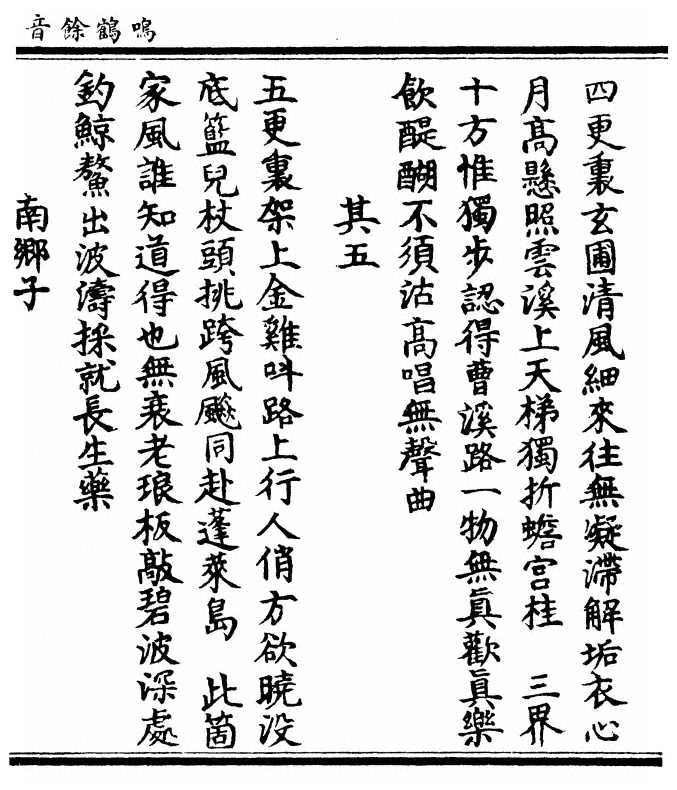 鳴鶴餘音
四更裏玄圃清風細來往無凝滯解垢衣心
月高懸照雲溪上天梯獨折蟾宮桂　三界
十方惟獨步認得曹溪路一物無眞歡眞樂
飲醍醐不須沽高唱無聲曲
其五
五更裏架上金雞呌路上行人俏方欲曉没
底籃兒杖頭挑跨風飈同赴蓬萊島　此箇
家風誰知道得也無衰老琅板敲碧波深處
釣鯨鰲出波濤採就長生藥
南鄉子